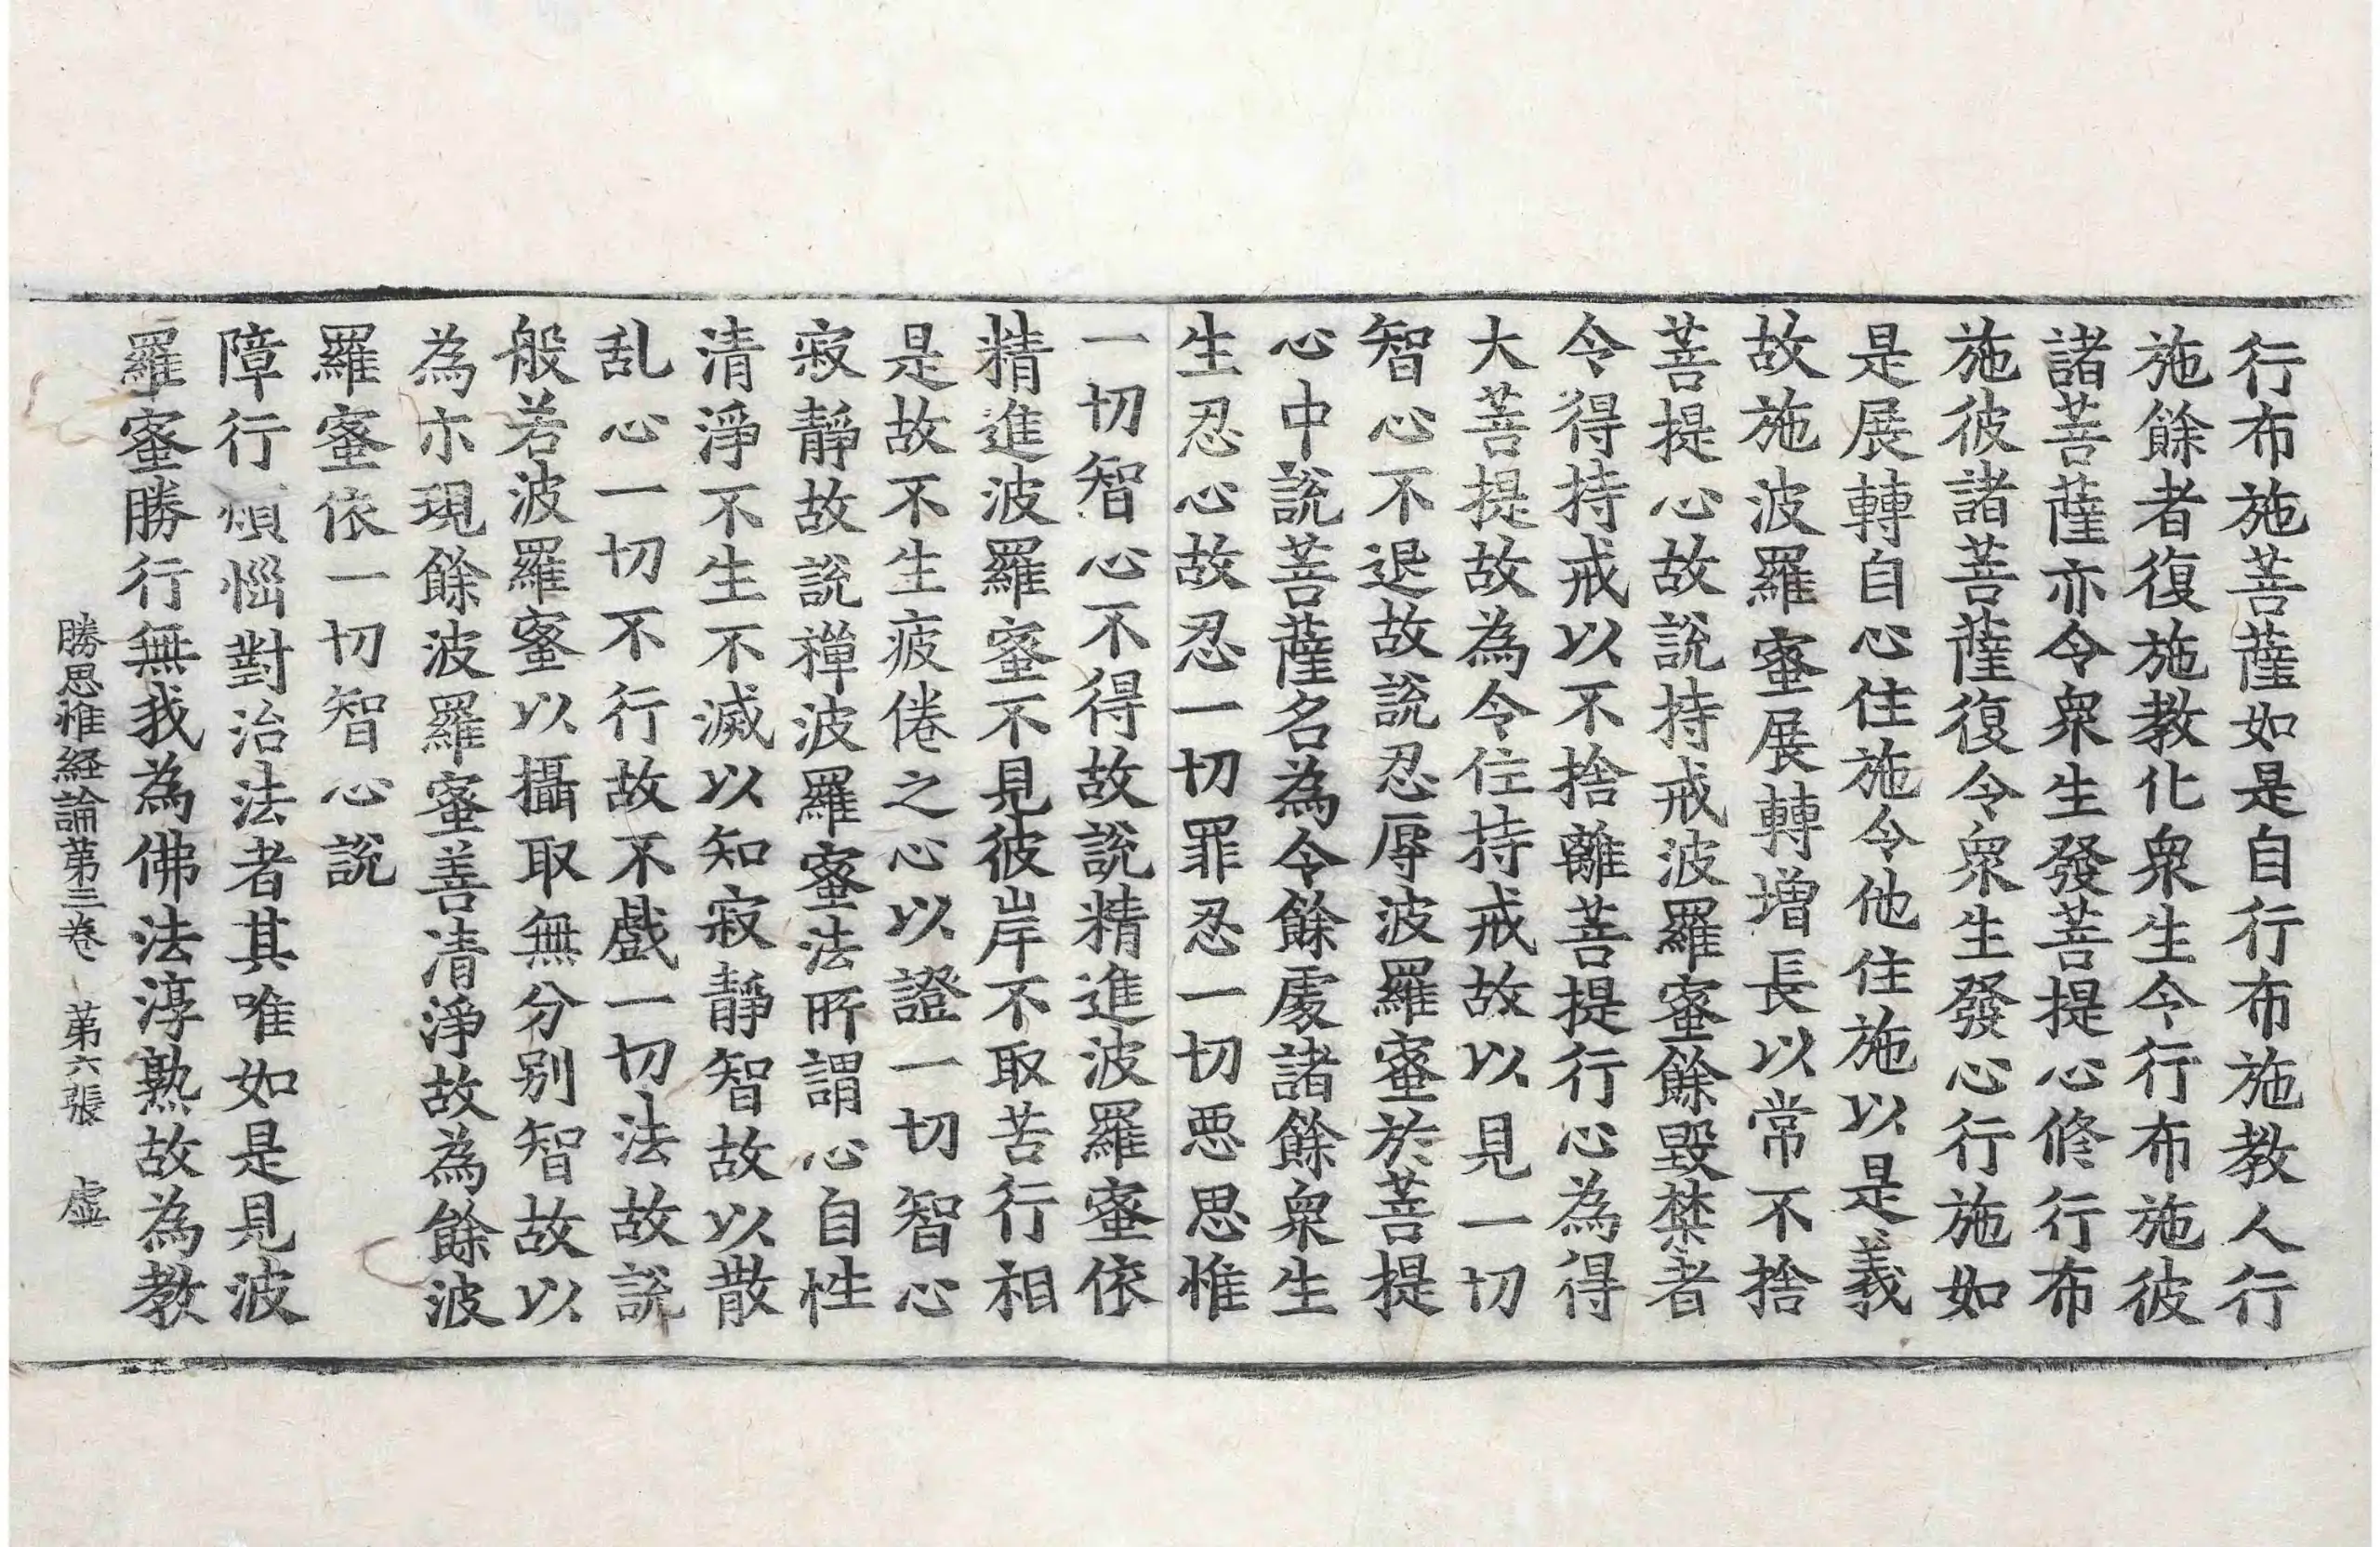 行布施菩薩如是自行布施教人行
施餘者復施教化衆生令行布施彼
諸菩薩亦令衆生發菩提心修行布
施彼諸菩薩復令衆生發心行施如
是展轉自心住施令他住施以是義
故施波羅蜜展轉增長以常不捨
菩提心故說持戒波羅蜜餘毀禁者
令得持戒以不捨離菩提行心為得
大菩提故為令住持戒故以見一切
智心不退故說忍辱波羅蜜於菩提
心中說菩薩名為令餘處諸餘衆生
生忍心故忍一切罪忍一切悪思惟
一切智心不得故說精進波羅蜜依
精進波羅蜜不見彼岸不取苦行相
是故不生疲倦之心以證一切智心
寂靜故說禪波羅蜜法所謂心自性
清淨不生不滅以知寂靜智故以散
乱心一切不行故不戲一切法故說
般若波羅蜜以攝取無分别智故以
為亦現餘波羅蜜善清淨故為餘波
羅蜜依一切智心說
障行煩惱對治法者其唯如是見波
羅蜜勝行無我為佛法淳熟故為教
勝思惟経論第三卷 第六張 虛